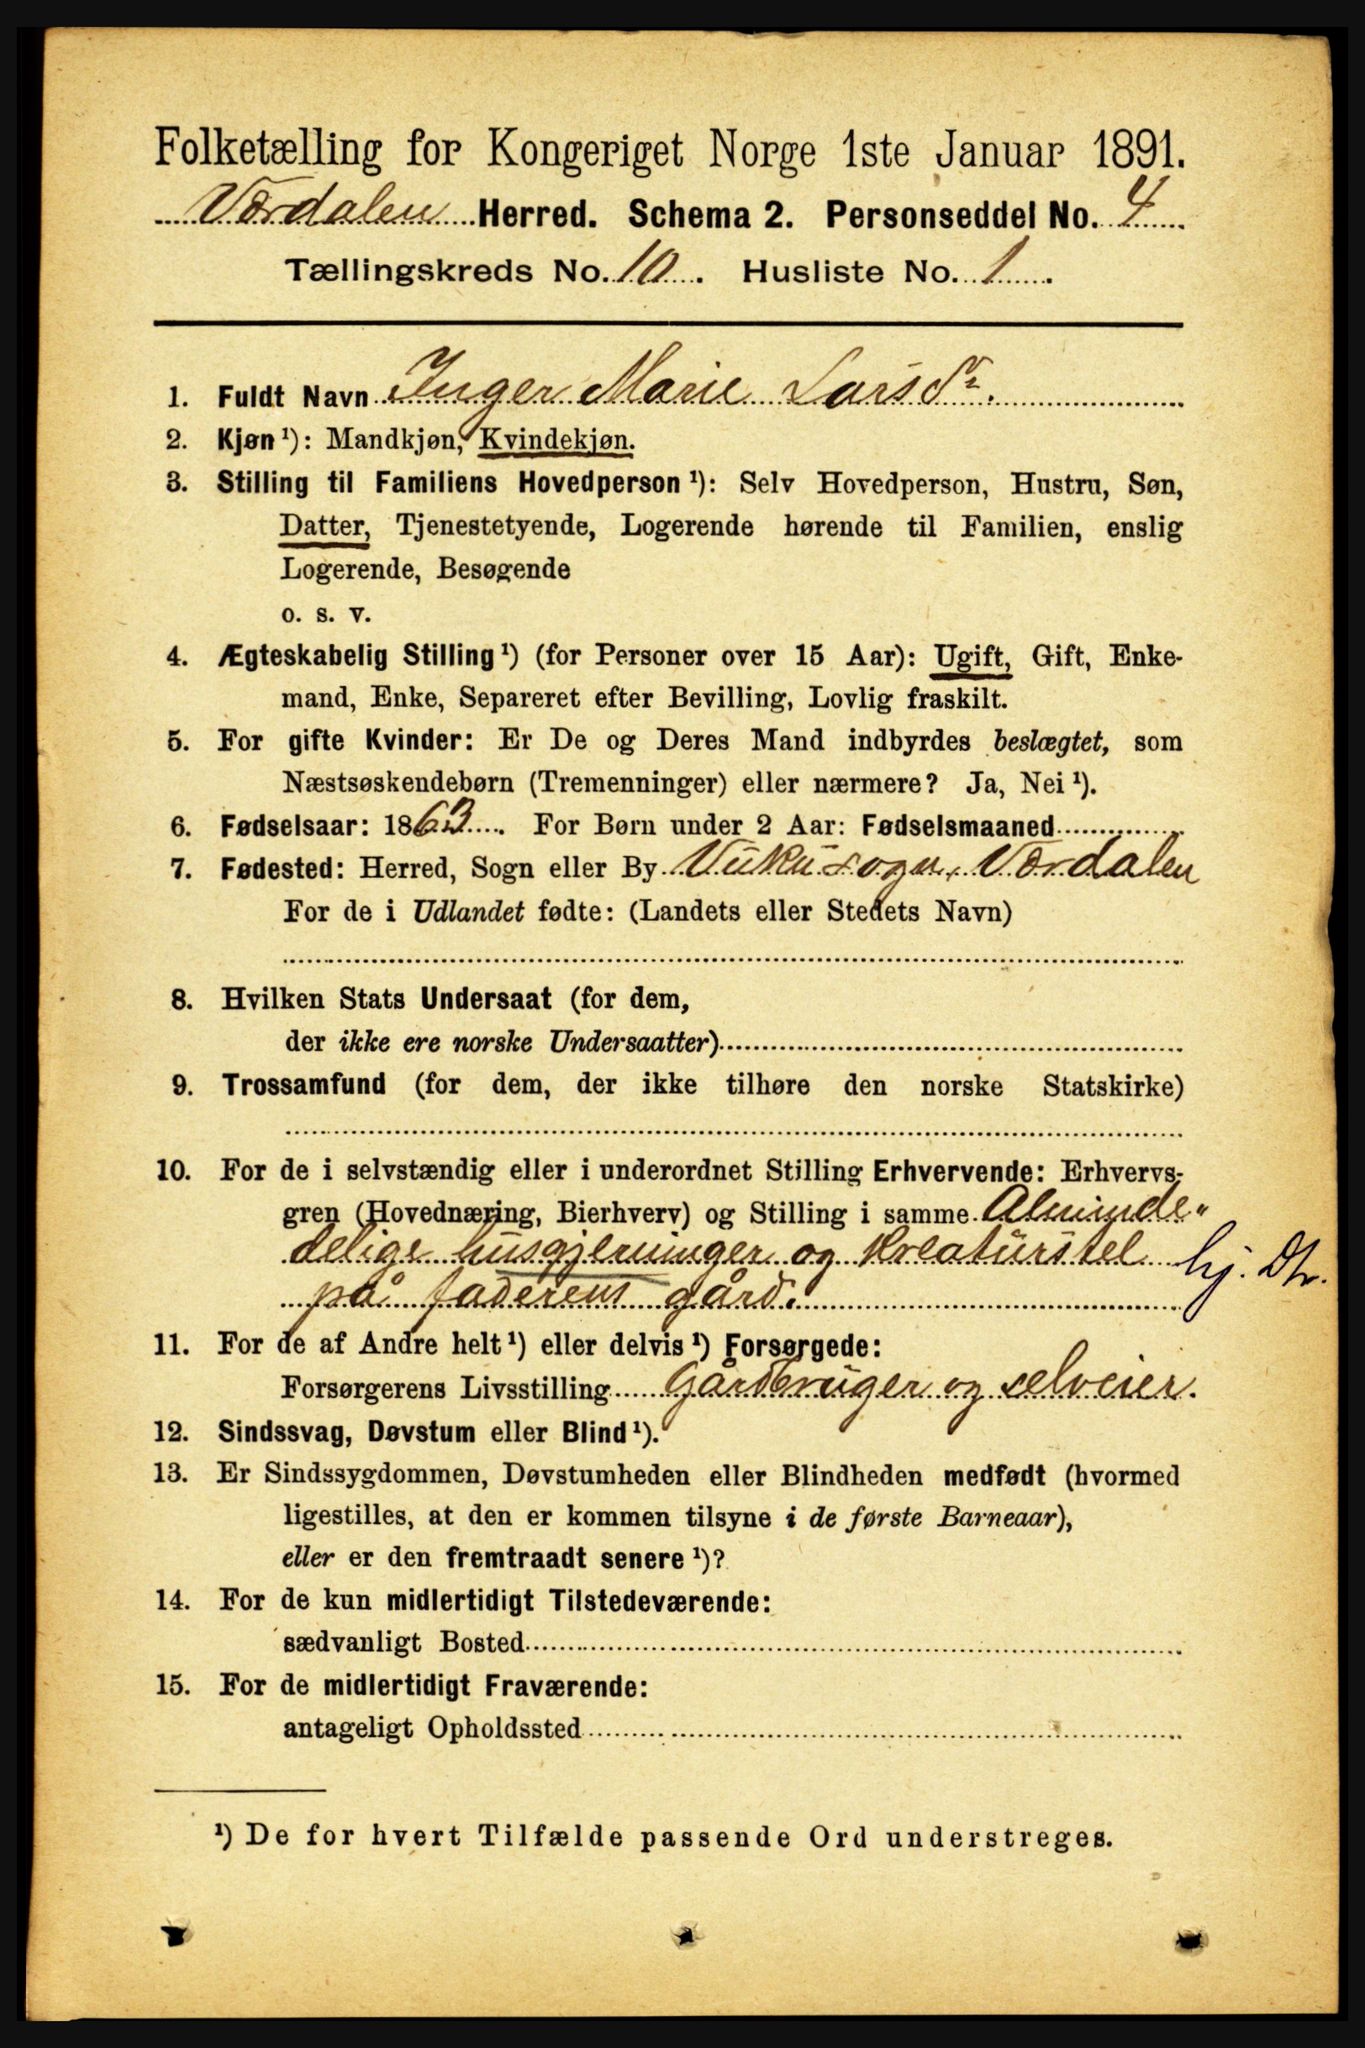 Folketælling for Kongeriget Norge 1ste Januar 1891.
Værdalen Herred. Schema 2. Personseddel No. 4
Tællingskreds No. 10. Husliste No. 1
1. Fuldt Navn Inger Marie Larsdr.
2. Kjøn ¹): Mandkjøn, Kvindekjøn.
3. Stilling til Familiens Hovedperson ¹): Selv Hovedperson, Hustru, Søn,
Datter, Tjenestetyende, Logerende hørende til Familien, enslig
Logerende, Besøgende
o. s. v.
4. Ægteskabelig Stilling ¹) (for Personer over 15 Aar): Ugift, Gift, Enke-
mand, Enke, Separeret efter Bevilling, Lovlig fraskilt.
5. For gifte Kvinder: Er De og Deres Mand indbyrdes beslægtet, som
Næstsøskendebørn (Tremenninger) eller nærmere? Ja, Nei ¹).
6. Fødselsaar: 1863. For Børn under 2 Aar: Fødselsmaaned
7. Fødested: Herred, Sogn eller By Vuku sogn, Værdalen
For de i Udlandet fødte: (Landets eller Stedets Navn)
8. Hvilken Stats Undersaat (for dem,
der ikke ere norske Undersaatter)
9. Trossamfund (for dem, der ikke tilhøre den norske Statskirke)
10. For de i selvstændig eller i underordnet Stilling Erhvervende: Erhvervs-
gren (Hovednæring, Bierhverv) og Stilling i samme Alminde„
delige husgjerninger og kreaturstel hj. Dtr.
på faderens gård.
11. For de af Andre helt ¹) eller delvis ¹) Forsørgede:
Forsørgerens Livsstilling Gårdbruger og selveier.
12. Sindssvag, Døvstum eller Blind ¹).
13. Er Sindssygdommen, Døvstumheden eller Blindheden medfødt (hvormed
ligestilles, at den er kommen tilsyne i de første Barneaar),
eller er den fremtraadt senere ¹)?
14. For de kun midlertidigt Tilstedeværende:
sædvanligt Bosted
15. For de midlertidigt Fraværende:
antageligt Opholdssted
¹) De for hvert Tilfælde passende Ord understreges.